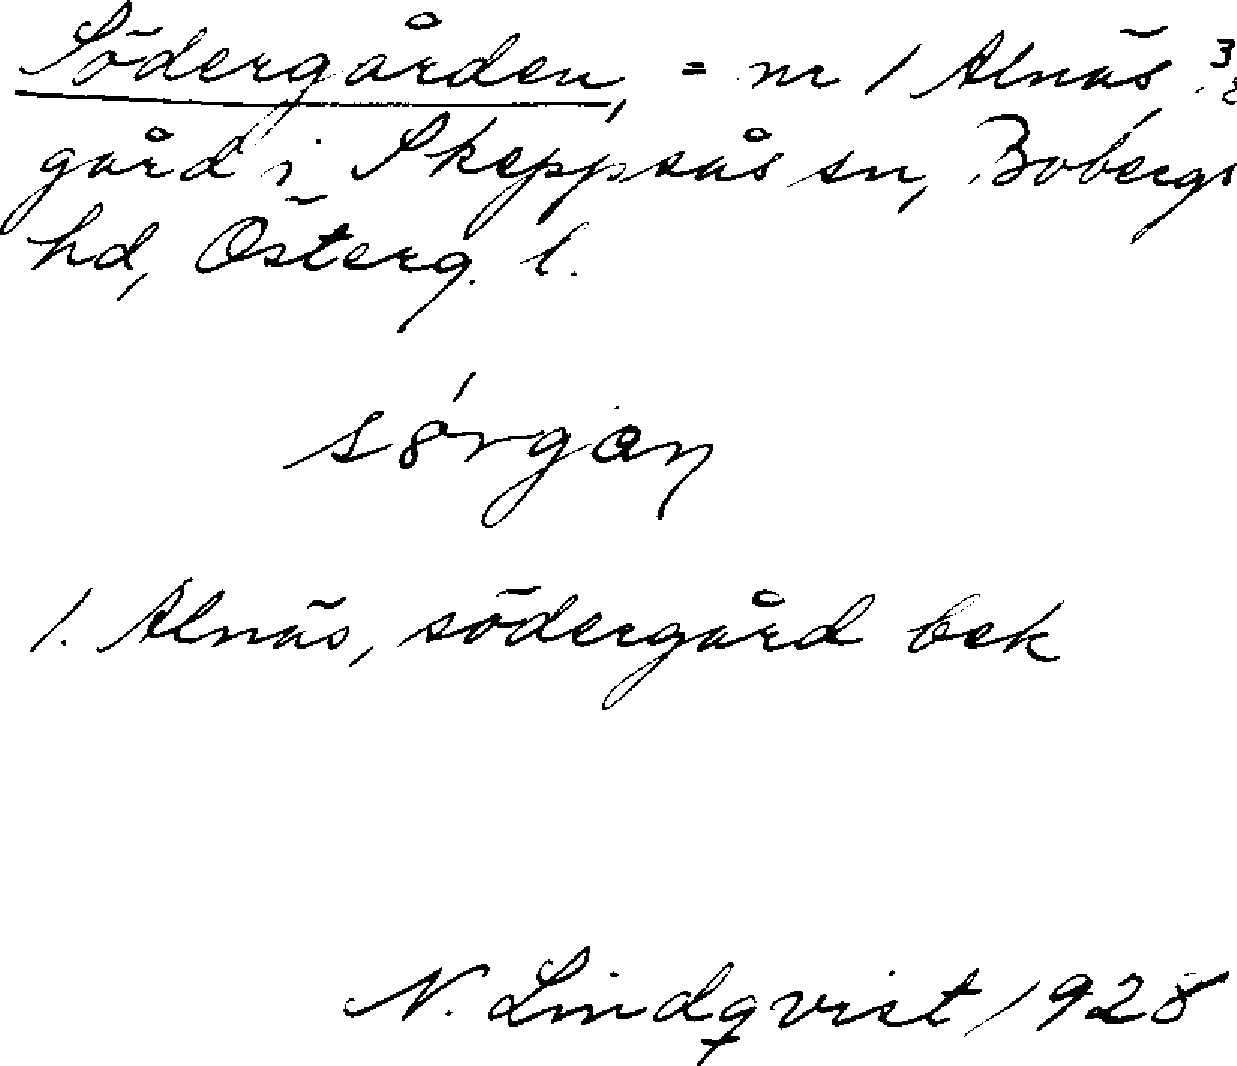 Södergården, = nr 1 Alnäs 3/8
gård i Skeppsås sn, Bobergs
hd, Österg. l.
sǿrgan
1. Alnäs, södergård bek
N. Lindqvist 1928